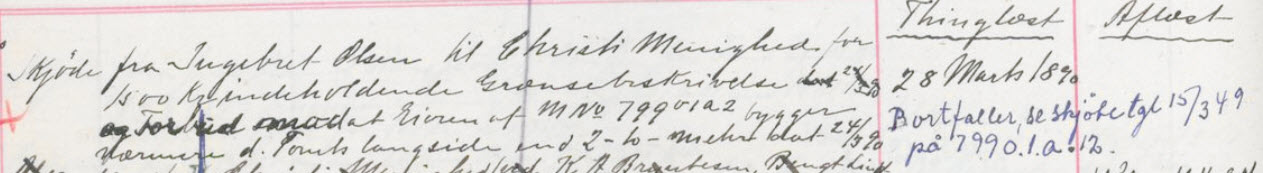 Thinglæst Aflæst
Skjöde fra Ingebret Olsen til Christi Menighed for
1500 Kr indeholdende Grænsebeskrivelse dat 24/3 90 28 Marts 1890
og Forbud mod at Eieren af MNo 799 01a2 bygger Bortfaller, se skjöte tgl 15/3 49
nærmere d. Tomts langside end 2-to-meter dat 24/3 90 på 799 0.1.a.12.
Menighed K A Bengt